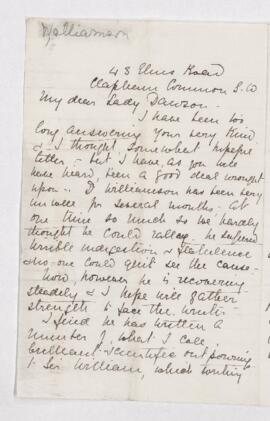 Williamson
43 Elms Road
Clapham Common S.W
My dear Lady Dawson -
I have been too
long answering your very kind
& I thought somewhat hopeful
letter - but I have, as you will
have heard, been a good deal wrought
upon - Dr Williamson has been very
unwell for several months - at
one time so much so we hardly
thought he could rally. he suffered
horrible indigestion & flatulence
& no one could quite see the cause -
Now, however he is recovering
steadily & I hope will gather
strength to face the winter -
I find he has written a
number of what I call
brilliant scientific outpourings
to Sir William, which writing